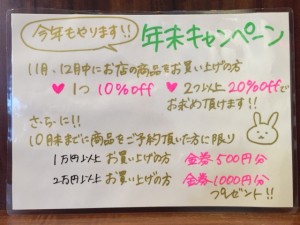 今年もやります!!
年末キャンペーン
11月、12月中にお店の商品をお買い上げの方
♥1つ 10%off ♥2つ以上20%offで
お求め頂けます!!
さらに!!
10月末までに商品をご予約頂いた方に限り
1万円以上お買い上げの方 金券500円分
2万円以上お買い上げの方 金券1000円分
プレゼント!!